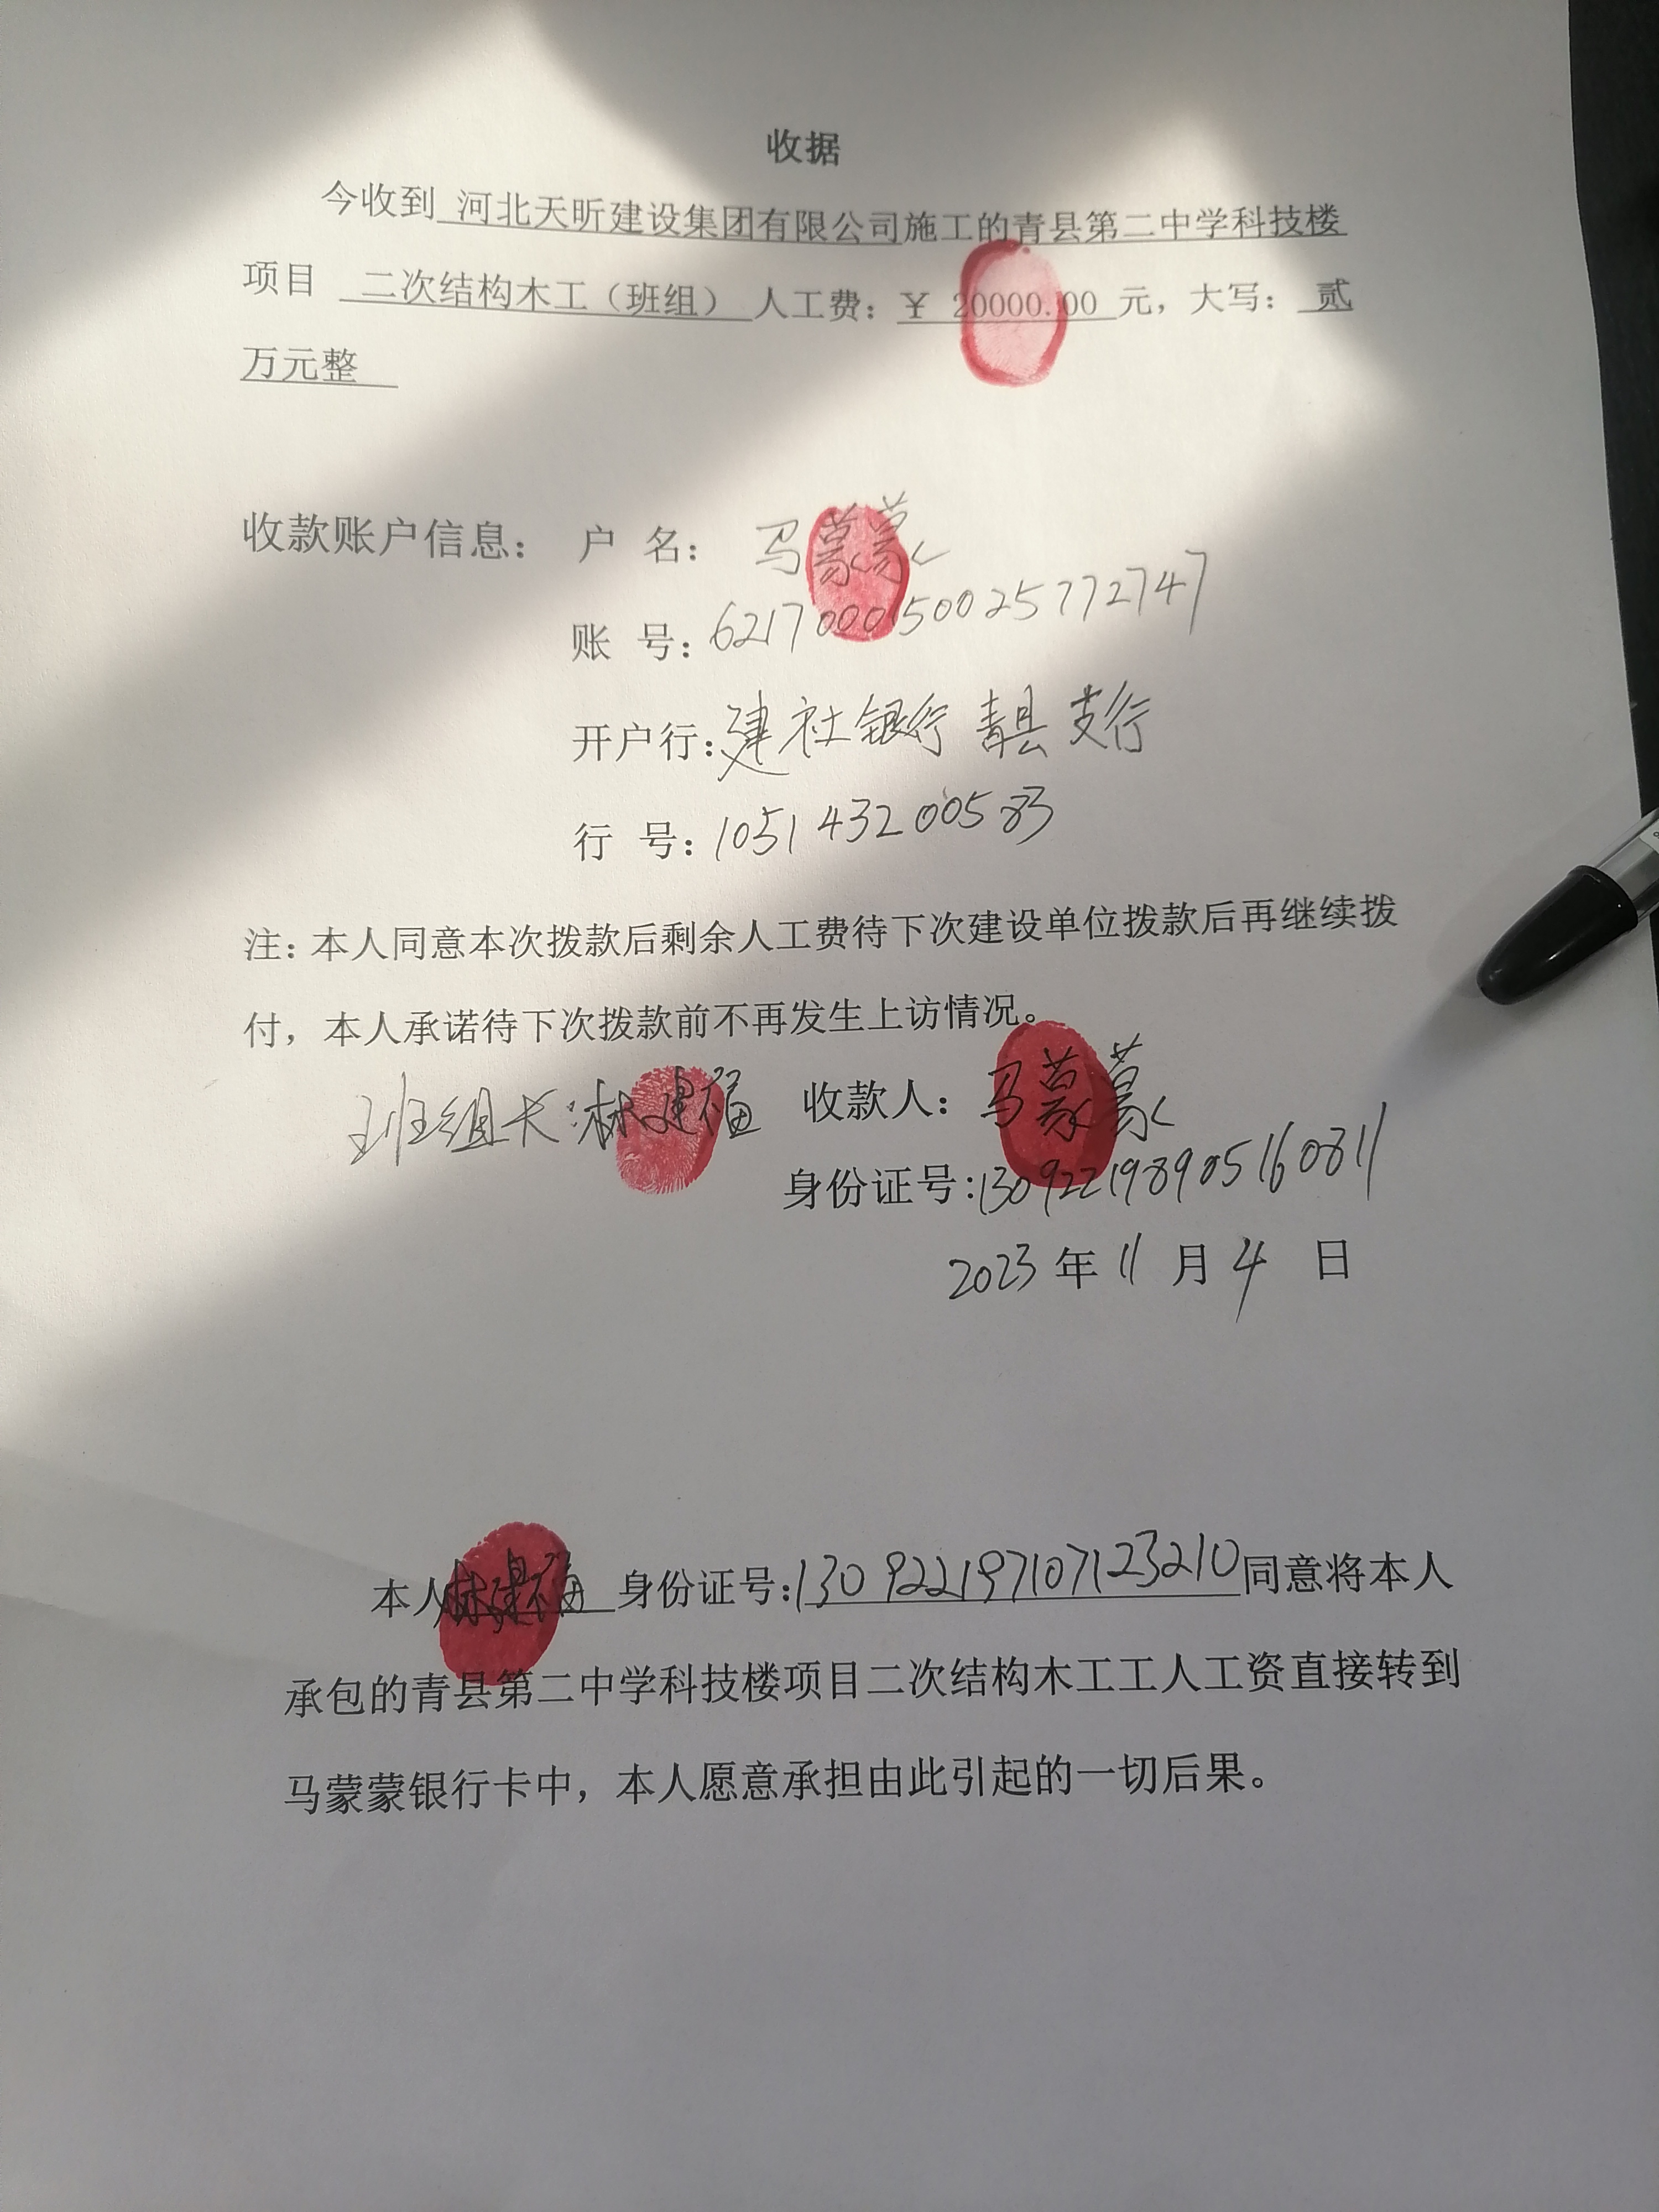 收据
今收到 河北天昕建设集团有限公司施工的青县第二中学科技楼
项目 二次结构木工（班组） 人工费：￥ 20000.00 元，大写： 贰
万元整
收款账户信息： 户 名： 马蒙蒙
账 号：6217000150025772747
开户行：建社银行青县支行
行 号：105143200583
注：本人同意本次拨款后剩余人工费待下次建设单位拨款后再继续拨
付，本人承诺待下次拨款前不再发生上访情况。
班组长：林建福 收款人：马蒙蒙
身份证号：130922198905160811
2023年11月4日
本人林建福 身份证号：130922197107123210同意将本人
承包的青县第二中学科技楼项目二次结构木工工人工资直接转到
马蒙蒙银行卡中，本人愿意承担由此引起的一切后果。